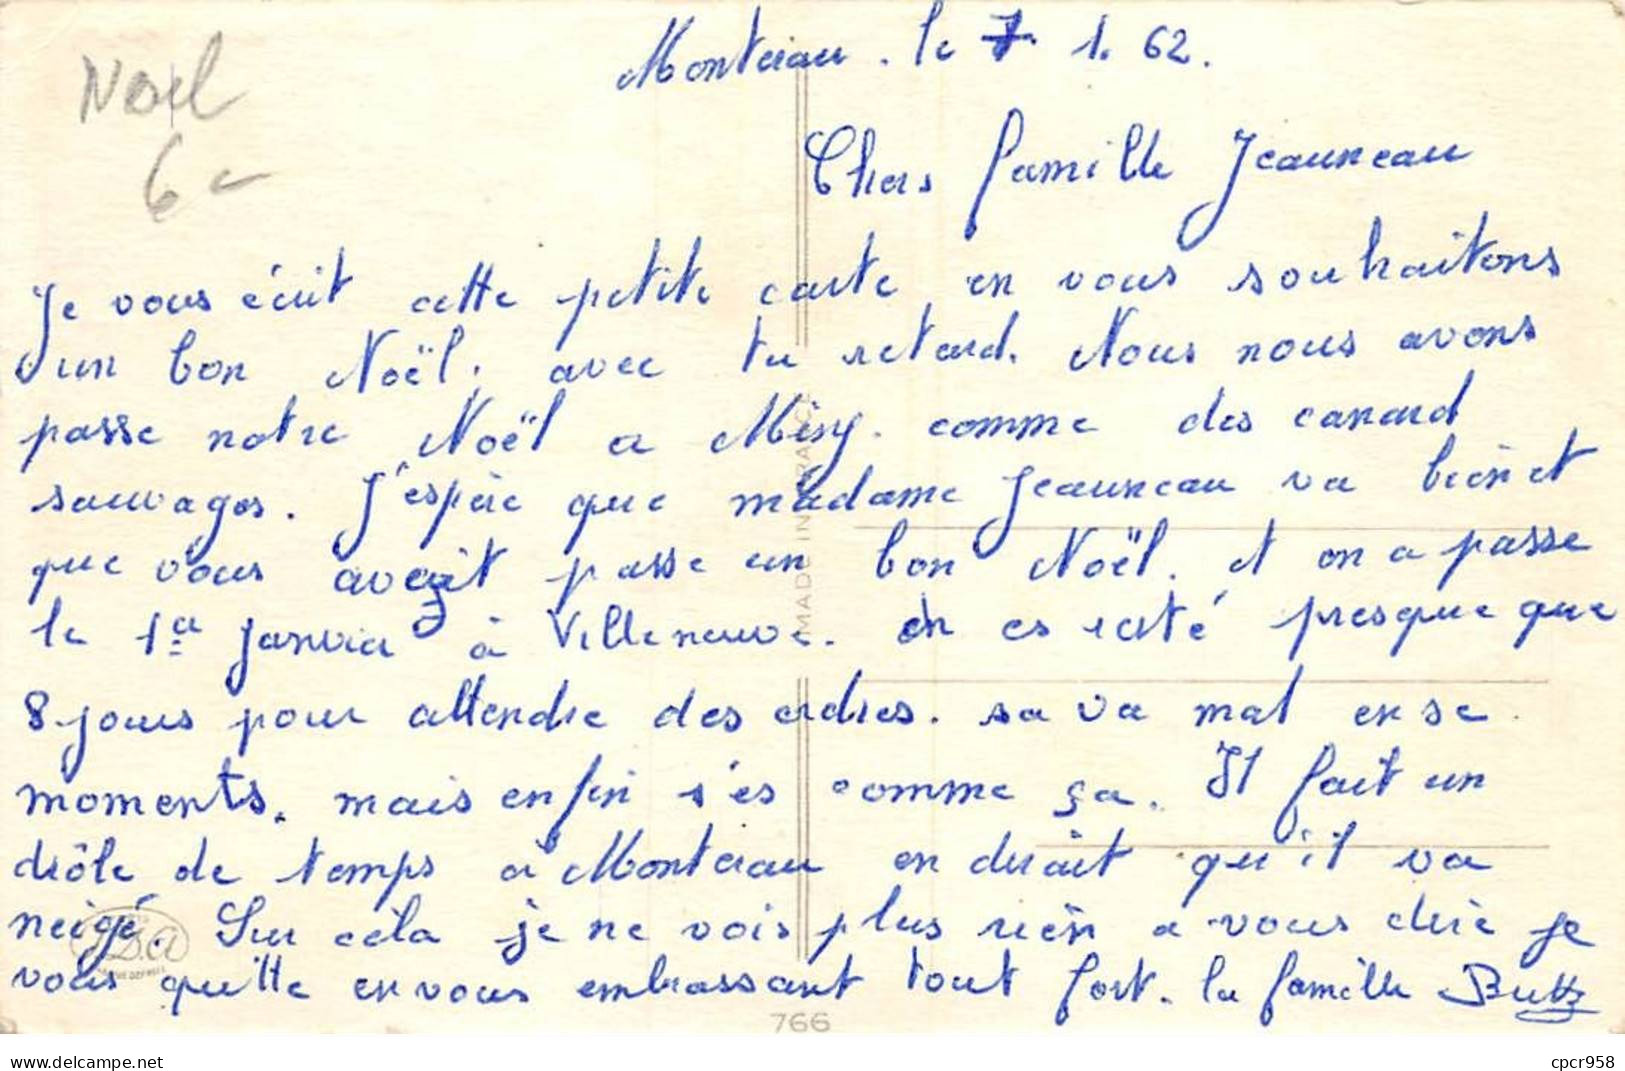 Noël
6
Montereau. le 7. 1. 62.
Chers famille Jeauneau
Je vous écrit cette petite carte en vous souhaitons
un bon Noël. avec tu retard. Nous nous avons
passe notre Noël a Misy. comme des canard
sauvages. J'espère que madame Jeauneau va bien et
que vous avait passe un bon Noël. et on a passe
le 1er Janvier à Villeneuve. on es resté presque que
8 jours pour attendre des ordres. sa va mal en se
moments. mais enfin s'es comme ça. Il fait un
drôle de temps a Montereau en dirait qu'il va
neigé. Sur cela je ne vois plus rien a vous dire je
vous quitte en vous embrassant tout fort. la famille Buttz
MADE IN FRANCE
766
delcampe.net
cpcr958